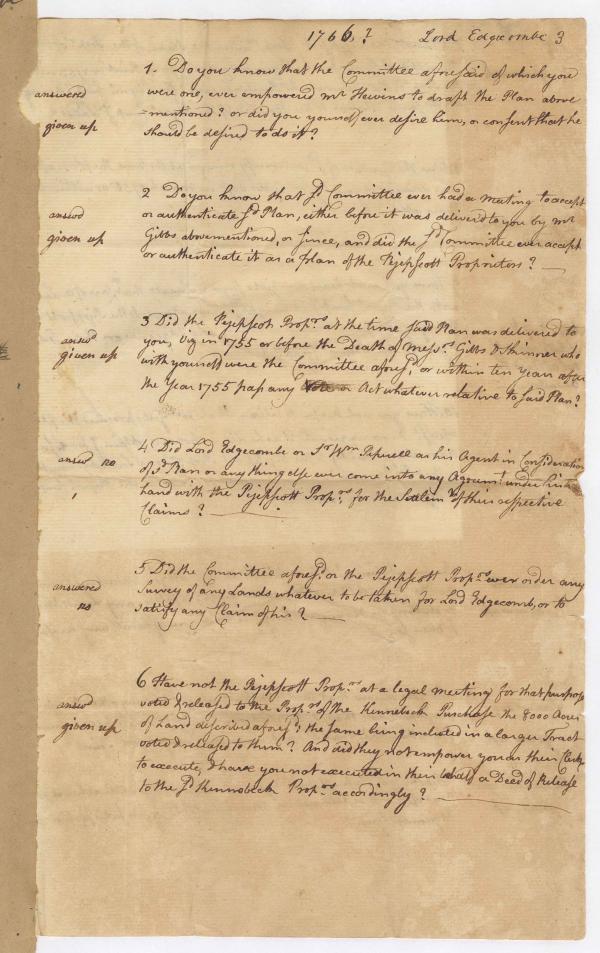 1766.? Lord Edgecombe 3
1. Do you know that the Committee aforesaid of which you
answered were one, ever empowered mr Hewins to draft the Plan above
=mentioned? or did you yourself ever desire him, or consent that he
given up should be desired to do it?
2 Do you know that sd Committee ever had a meeting to accept
answd or authenticate sd Plan, either before it was deliver'd to you by mr
given up Gibbs abovementioned, or since, and did the sd Committee ever accept
or authenticate it as a plan of the Pejepscott Proprietors?
3 Did the Pejepscot Proprs at the time said Plan was delivered to
answd you, viz in 1755 or before the Death of Messrs Gibbs & Skinner who
given up with yourself were the Committee aforesd or within ten Years after
the Year 1755 pass any Vote or Act whatever relative to said Plan?
4 Did Lord Edgecombe or Sr Wm Peperell as his Agent in Consideration
answd no of sd Plan or any thing else ever come into any Agreemt under his
hand with the Pejepscott Proprs for the Settlemt of their respective
Claims?
5 Did the Committee aforesd or the Pejepscott Proprs ever order any
answered Survey of any Lands whatever to be taken for Lord Edgecomb, or to
no satisfy any Claim of his?
6 Have not the Pejepscott Proprs at a legal meeting for that purpose
voted & released to the Proprs of the Kennebeck Purchase the 8000 Acres
answd of Land described aforesd; the same being included in a larger Tract
given up voted & released to them? And did they not empower you as their Clerk
to execute, & have you not executed in their behalf a Deed of Release
to the sd Kennebeck Proprs accordingly?